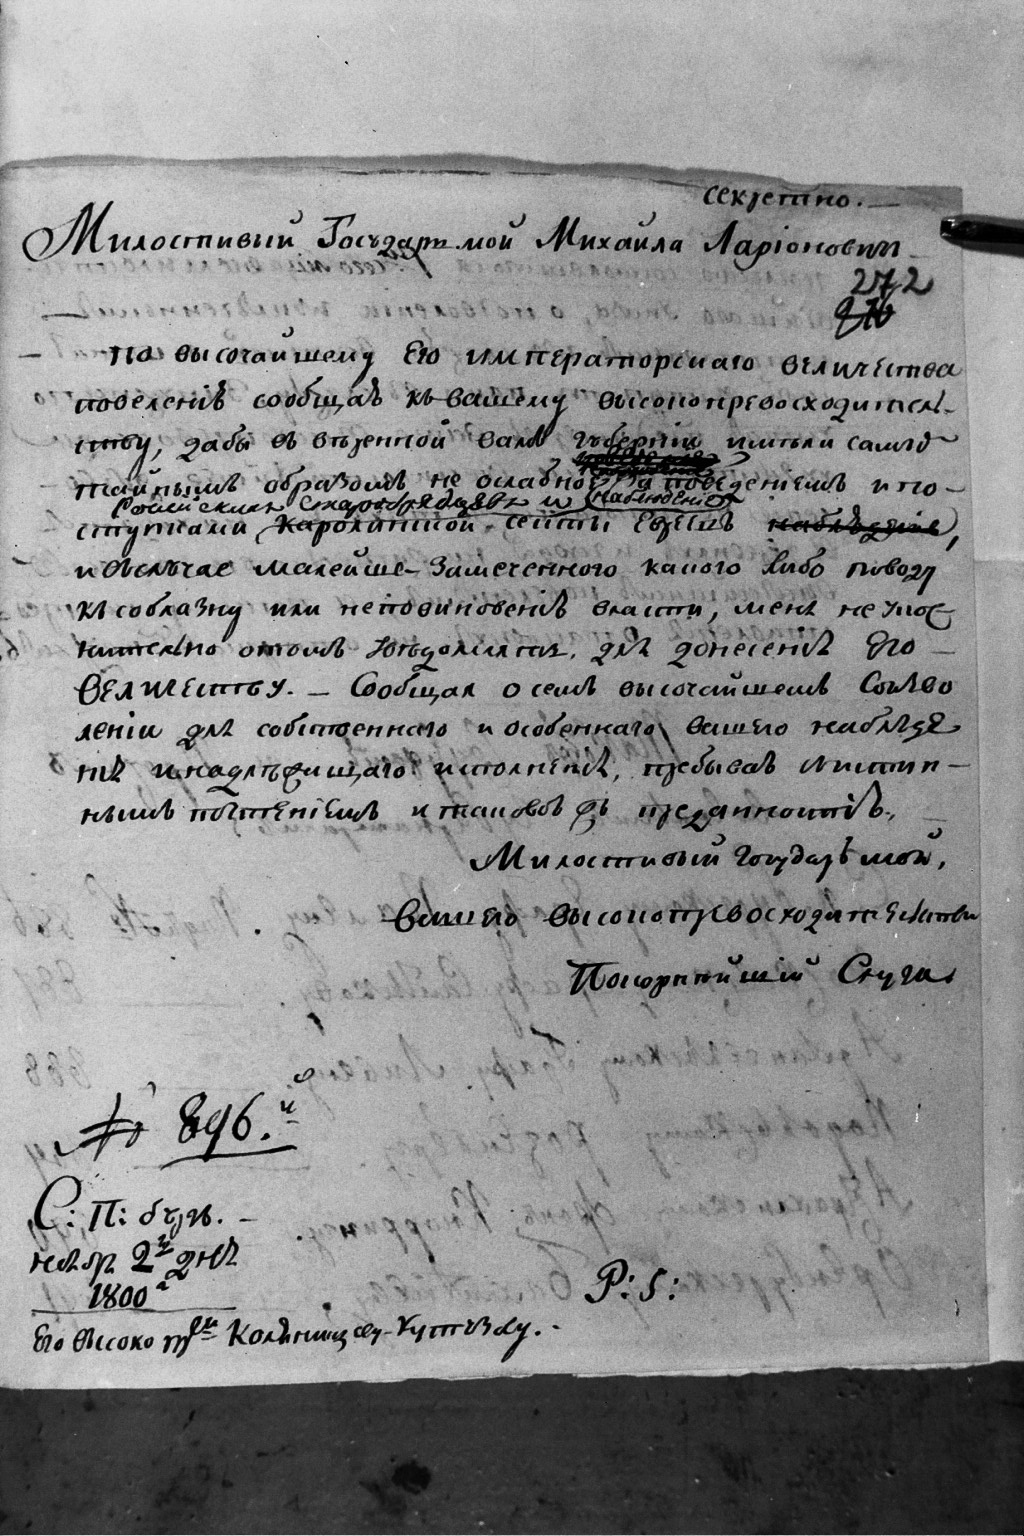 секретно. —
Милостивый Государь мой Михайла Ларіоновичь
272
— по высочайшему Его императорскаго величества
повеленію сообщаю къ вашему высокопревосходитель-
ству, дабы въ вверенной вамъ губерніи имели самыо
тайнымъ образомъ не ослабное за поведеніемъ и по-
Россійскихъ старообрядцевъ и наблюденіе
ступками Каролинской секты Евреевъ наблюденіе,
и въслучае малейше- замеченного какого либо поводу
къ соблазну или неповиновенію власти, меня не упос
нительно отомъ уведомлять, для донесенія Его —
Величеству. — Сообщая о семъ высочайшемъ Соизво
леніи для собственнаго и особеннаго вашего наблюде
нія и надлежащаго исполненія, пребываю съистин-
нымъ почтеніемъ и таковою же преданностію.
Милостивый государь мой,
Вашего высокопревосходительства
Покорнейшій Слуга
№ 896.й
С: П: бургъ. —
ноября 2й дня
1800а
P: S:
Его высоко први Коленищеву-Кутузову. -